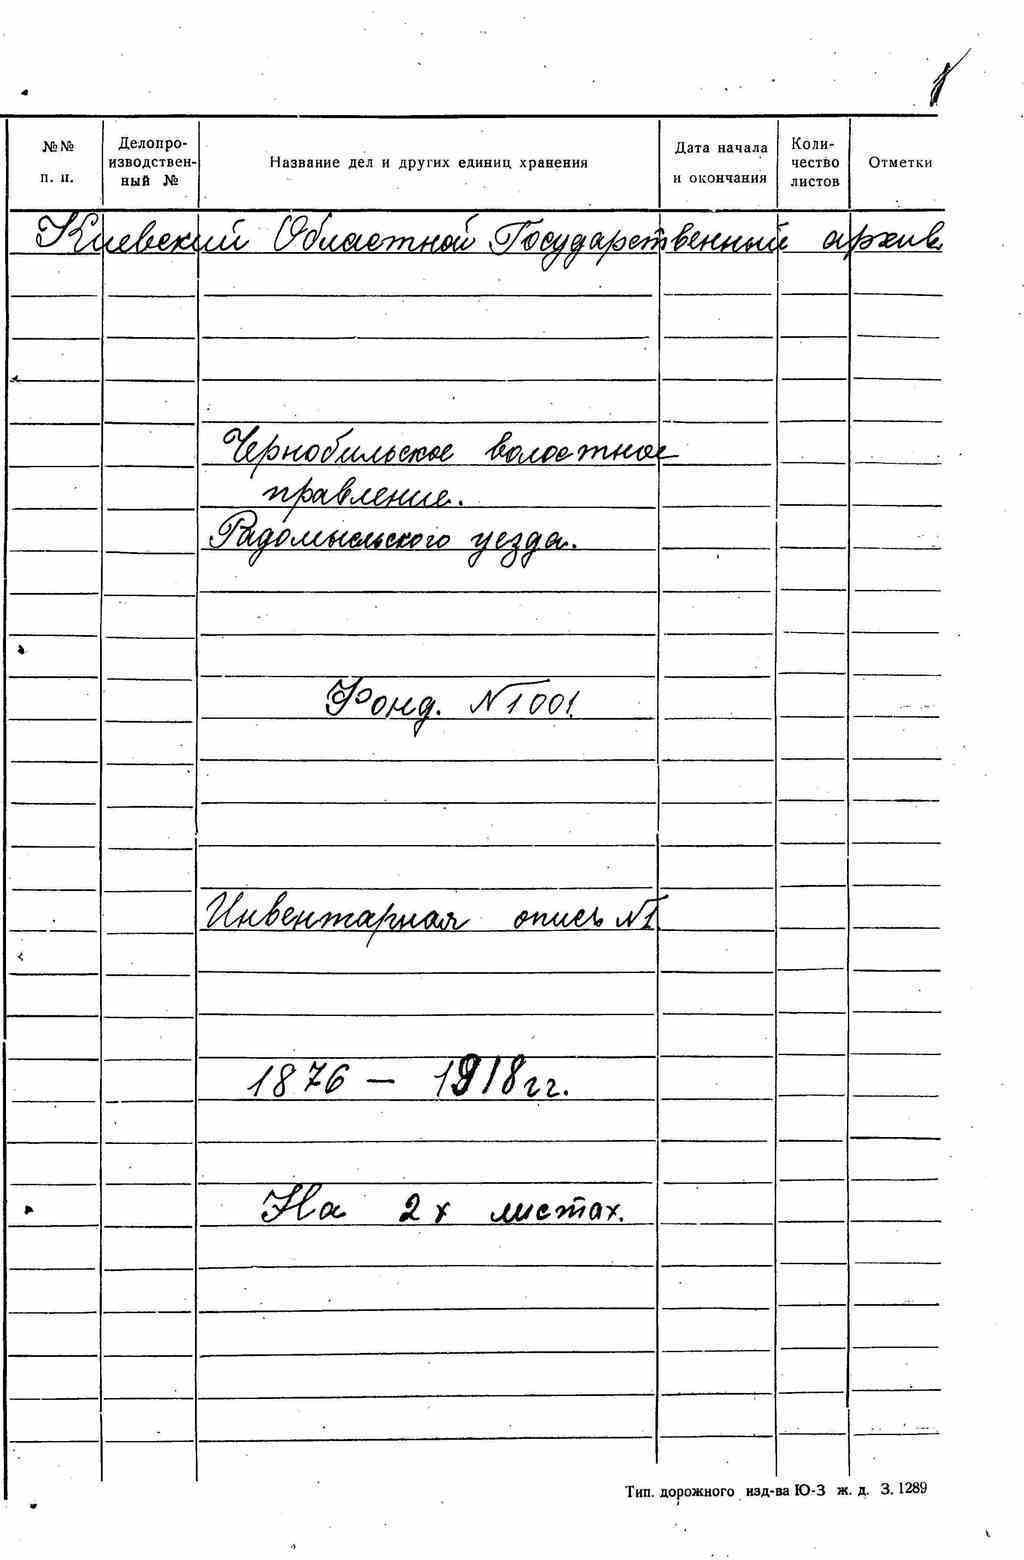 1
№№ п. п.
Делопро-
изводствен-
ный №
Название дел и других единиц хранения
Дата начала
и окончания
Коли-
чество
листов
Отметки
Киевский Областной Государственный архив
Чернобильское волостное
правление.
Радомысльского уезда.
Фонд. №1001.
Инвентарная опись №1
1876 — 1918 гг.
На 2х листах.
Тип. дорожного изд-ва Ю-З ж. д. З. 1289